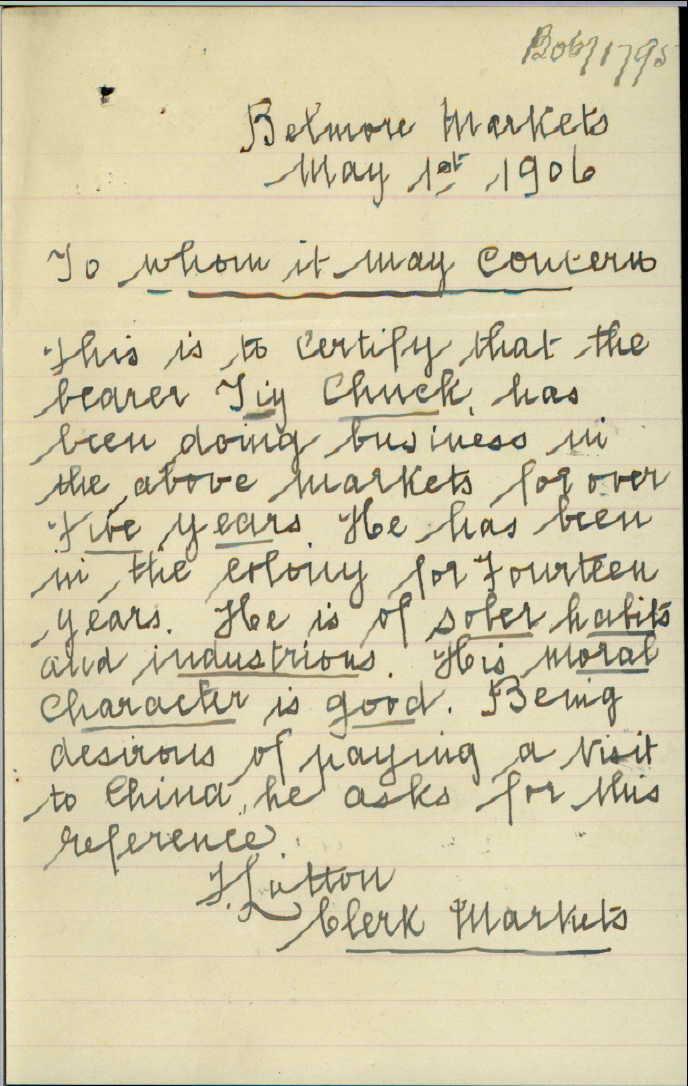 B06/1795
Belmore Markets
May 1st 1906
To whom it may concern
This is to certify that the
bearer Tiy Chuck, has
been doing business in
the above markets for over
Five years He has been
in the colony for Fourteen
years. He is of sober habits
and industrious. His moral
Character is good. Being
desirous of paying a visit
to China, he asks for this
reference.
Clerk Markets